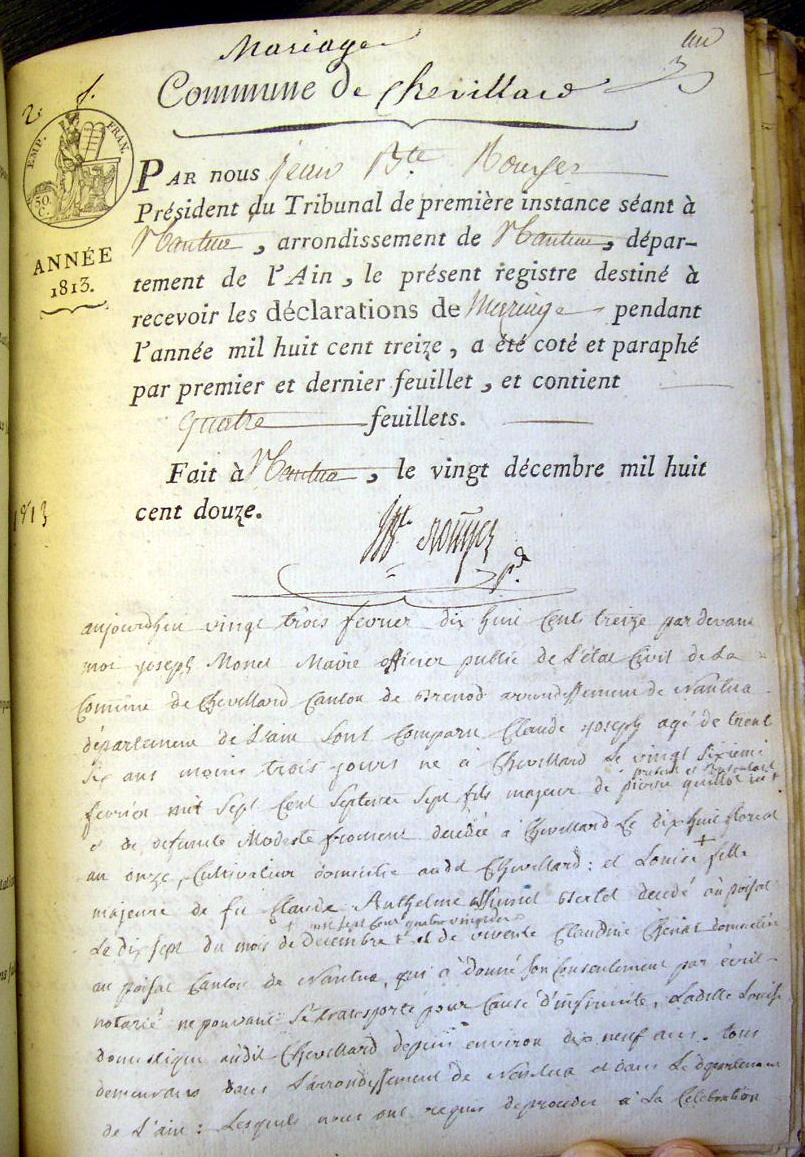 Mariage
un
Commune de Chevillard
2. f.
EMP. FRAN.
50. C.
ANNÉE
1813.
PAR nous Jean Bte Rouyer
Président du Tribunal de première instance séant à
Nantua, arrondissement de Nantua, dépar-
tement de l'Ain, le présent registre destiné à
recevoir les déclarations de Mariage pendant
l'année mil huit cent treize, a été coté et paraphé
par premier et dernier feuillet, et contient
quatre feuillets.
Fait à Nantua, le vingt décembre mil huit
cent douze.
1813
aujourdhui vingt trois fevrier dix huit Cent treize par devant
moi joseph Monet Maire officier public de L'état Civil de La
Comune de Chevillard Canton de Brenod arrondissement de Nantua
département de L'ain sont Comparu Claude joseph agé de trent
six ans moins trois jours né à Chevillard Le vingt sixieme
present et
fevrier mil sept Cent septente sept fils majeur de pierre
& de defunte Modeste froment decédée à Chevillard Le dix huit floreal
an onze, Cultivateur domicilié audit Chevillard: et Louise + fille
majeure de fu Claude Anthelme Bertet decedé au poisat
+ mil sept Cent quatre vingt
Le dix sept du mois de Decembre + et de vivente Claudine domiciliée
au poisat Canton de Nantua, qui à donné son Consentement par écrit
notarié ne pouvant se transporté pour Cause d'infirmité, Ladite Louise
domestique audit Chevillard depuis environ dix neuf ans. tous
demeurans dans L'arrondissement de Nantua et dans Le département
de L'ain: Lesquels nous ont requis de proceder à La Célébration